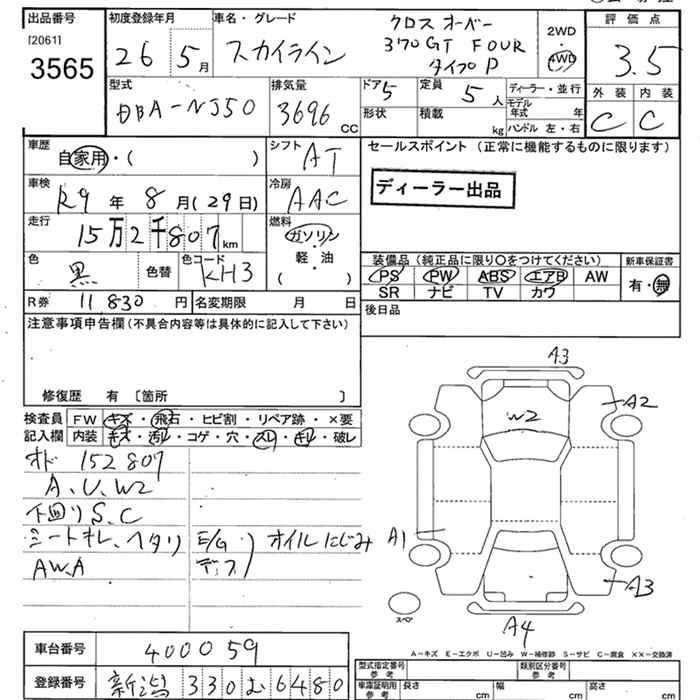 出品番号
[2061]
3565
初度登録年月
26 5月
車名・グレード
スカイライン
クロスオーバー
370GT FOUR
タイプP
2WD
・
4WD
評価点
3.5
外装 内装
C C
型式
DBA-NJ50
排気量
3696 CC
ドア 5
形状
定員 5 人
積載 kg
ディーラー・並行
モデル年式 年
ハンドル 左・右
車歴
自家用・( )
シフト
AT
車検
R9 年 8 月(29日)
冷房
AAC
走行
15万2千807 km
燃料
ガソリン
・
軽・油
( )
色
黒
色替
色コード
KH3
R券 11830 円
名変期限 月 日
セールスポイント (正常に機能するものに限ります)
ディーラー出品
装備品(純正品に限り〇をつけてください)
PS PW ABS エアB AW
SR ナビ TV カワ
新車保証書
有・無
後日品
注意事項申告欄(不具合内容等は具体的に記入して下さい)
修復歴 有 〔箇所 〕
検査員 FW キズ・飛石・ヒビ割・リペア跡・×要
記入欄 内装 キズ・汚レ・コゲ・穴・スレ・キレ・破レ
オド 152807
A、U、W2
下回りS、C
シートキレ、ヘタリ
AWA
E/G
デフ
オイルにじみ
A3
A2
W2
A1
A3
A4
スペア
A-キズ E-エクボ U-凹み W-補修跡 S-サビ C-腐食 ××-交換済
車台番号 400059
登録番号 新潟 330 む 6480
型式指定番号
参考
類別区分番号
参考
車庫証明用
参考
長さ cm
幅 cm
高さ cm